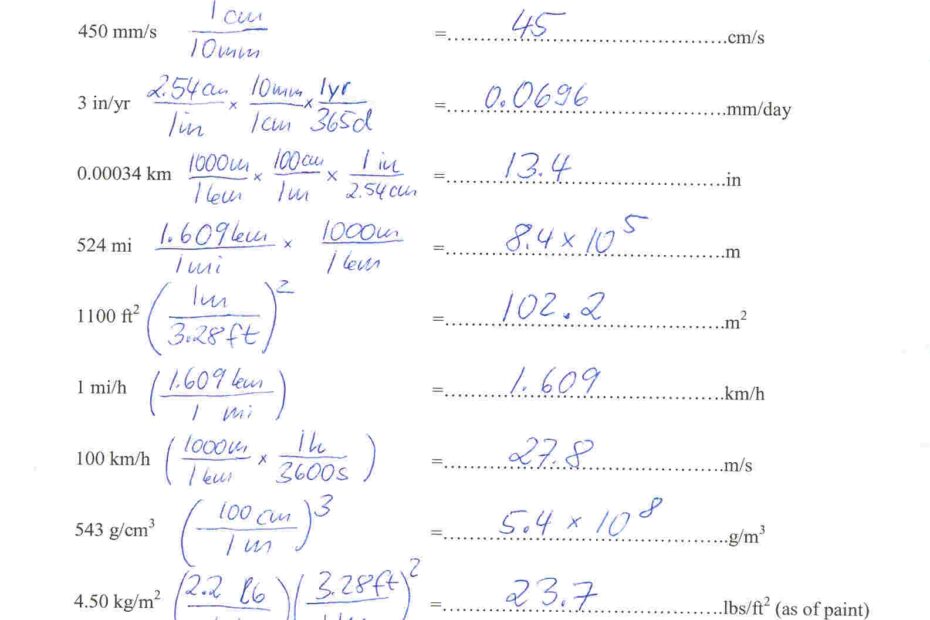 450 mm/s 1 cm / 10mm =..........45..........cm/s
3 in/yr 2.54 cm / 1in × 10mm / 1cm × 1yr / 365d =..........0.0696..........mm/day
0.00034 km 1000m / 1km × 100cm / 1m × 1 in / 2.54 cm =..........13.4..........in
524 mi 1.609km / 1mi × 1000m / 1km =..........8.4 × 10⁵..........m
1100 ft² (1m / 3.28ft)² =..........102.2..........m²
1 mi/h (1.609 km / 1 mi) =..........1.609..........km/h
100 km/h (1000m / 1km × 1h / 3600s) =..........27.8..........m/s
543 g/cm³ (100 cm / 1m)³ =..........5.4 × 10⁸..........g/m³
4.50 kg/m² (2.2 lb /)(3.28ft /)² =..........23.7..........lbs/ft² (as of paint)